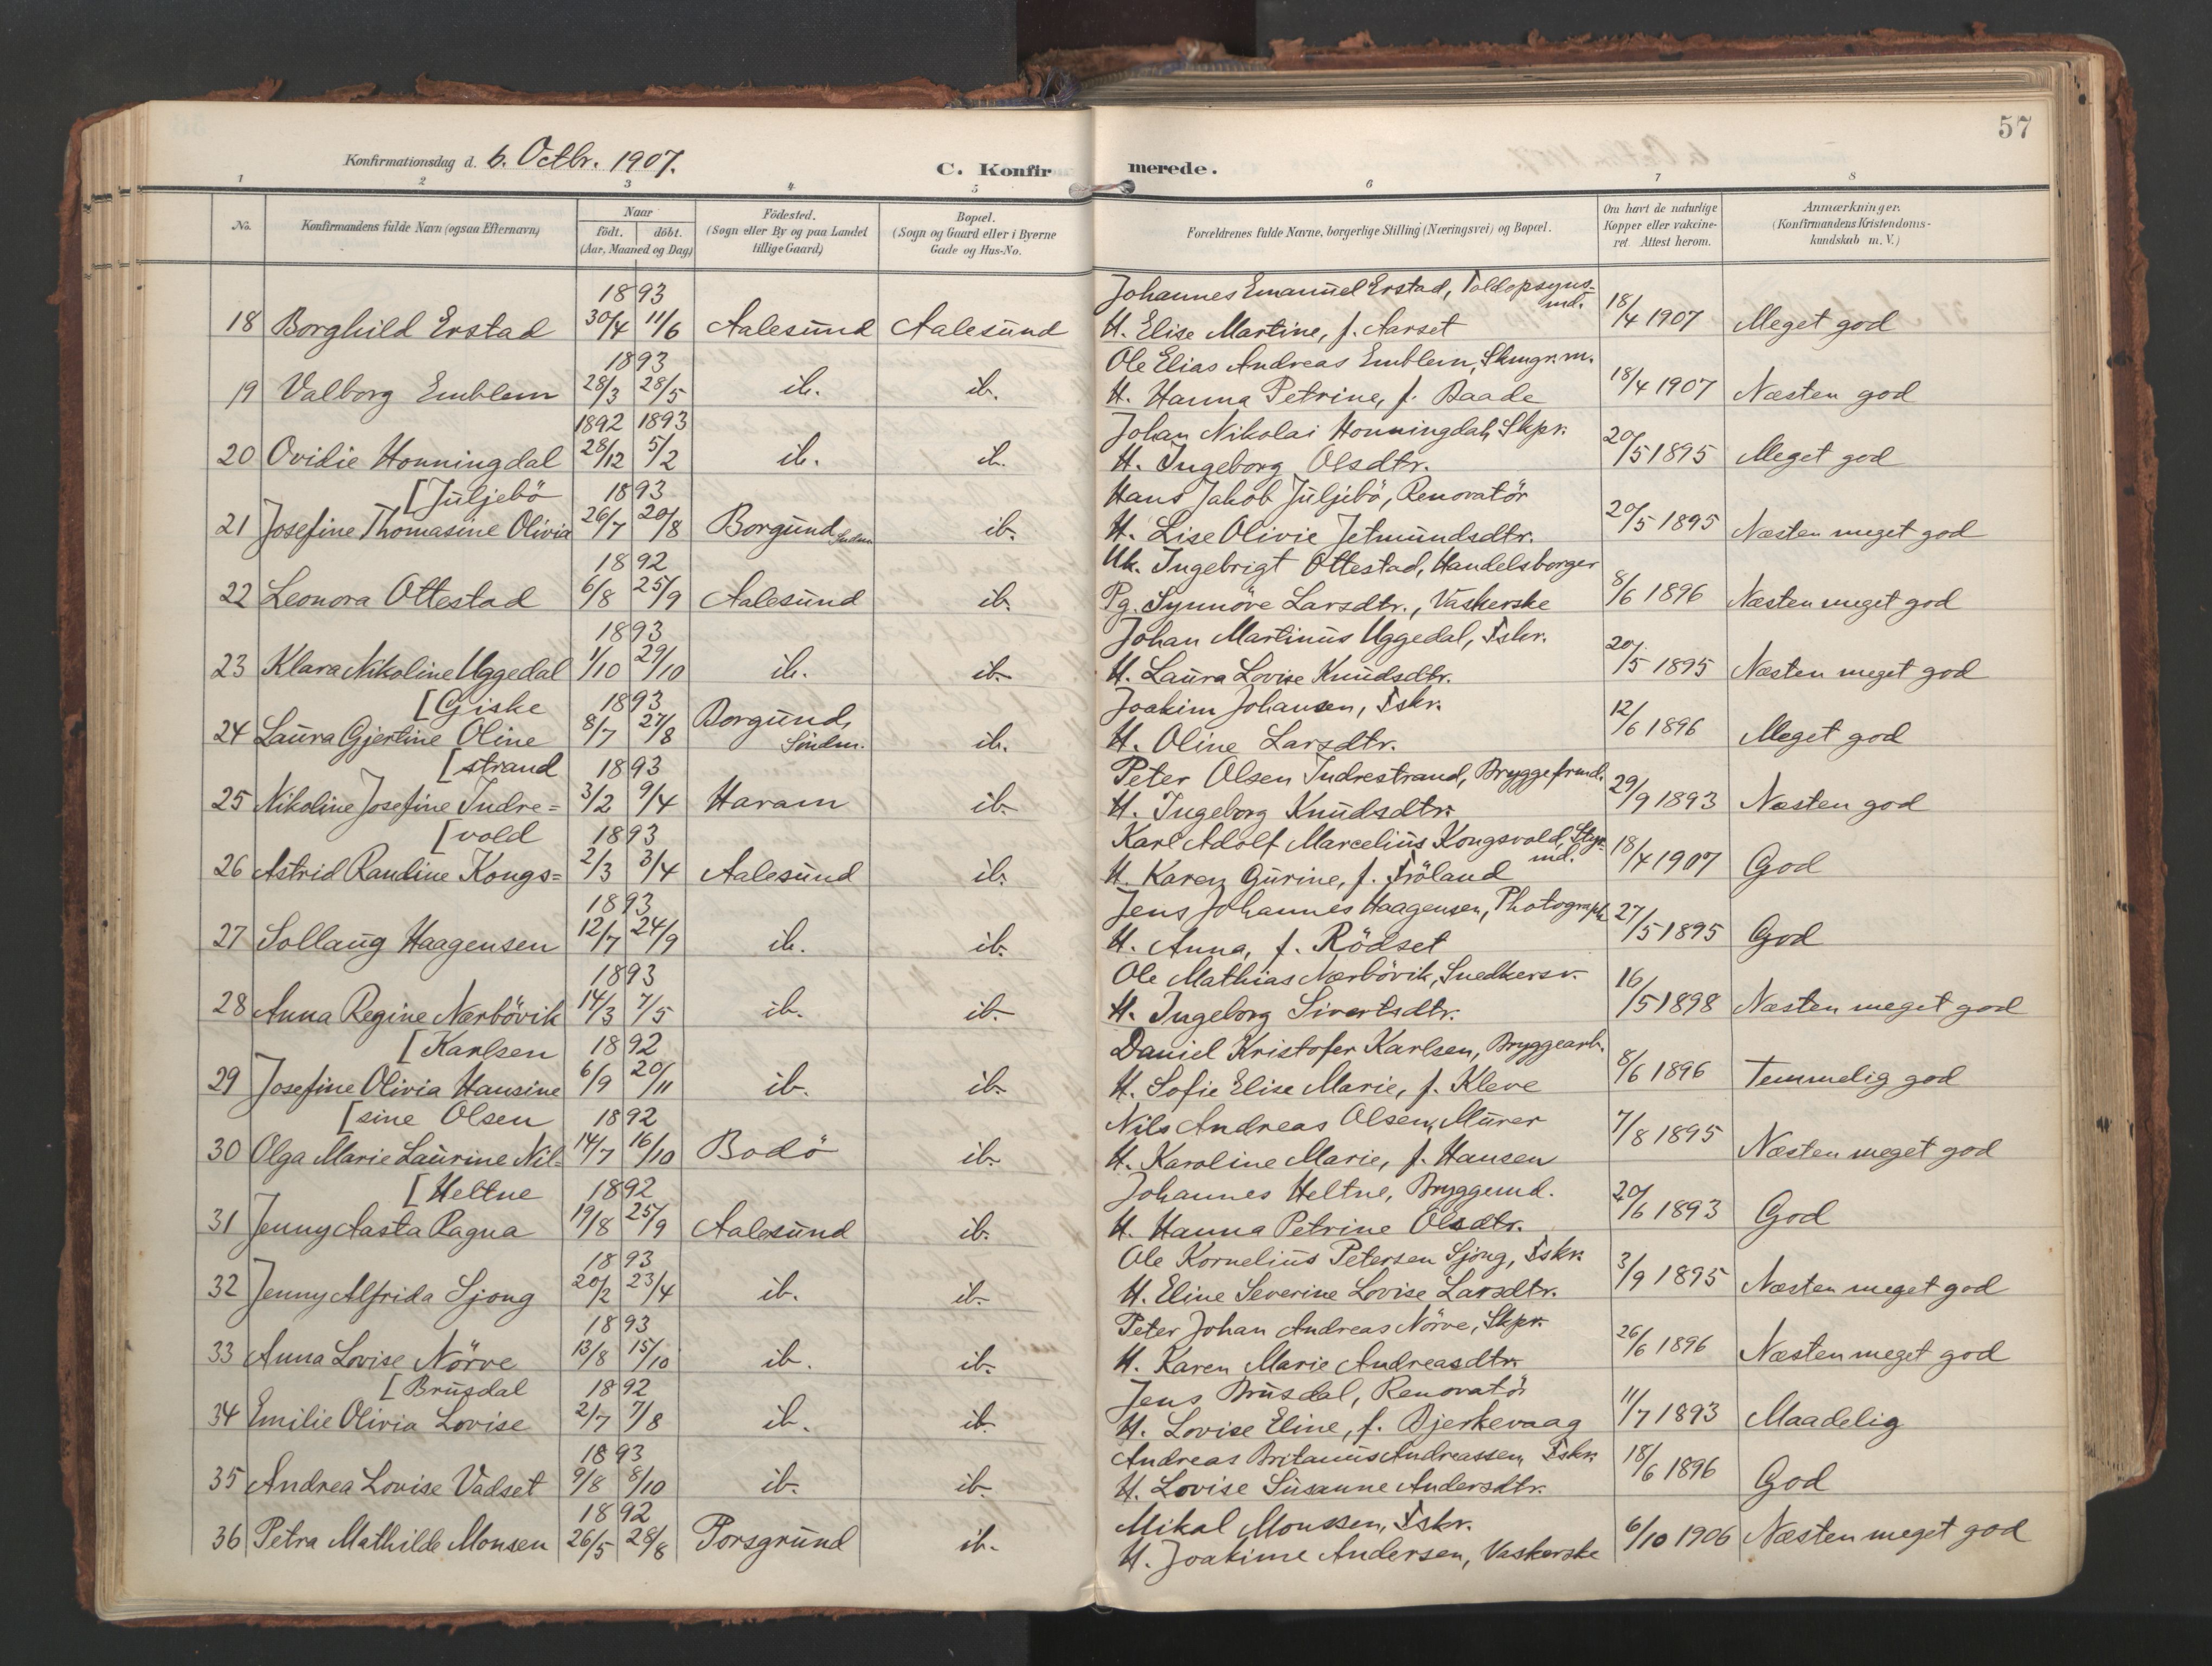 57
Konfirmationsdag d. 6. Octbr. 1907.
C. Konfirmerede.
1 2 3 4 5 6 7 8
No. Konfirmandens fulde Navn (ogsaa Efternavn) Naar födt. döbt. (Aar, Maaned og Dag) Födested. (Sogn eller By og paa Landet tillige Gaard) Bopæl. (Sogn og Gaard eller i Byerne Gade og Hus-No. Forældrenes fulde Navne, borgerlige Stilling (Næringsvei) og Bopæl. Om havt de naturlige Kopper eller vakcineret Attest herom. Anmærkninger. (Konfirmandens Kristendomskundskab m. V.)
1893 Johannes Emanuel Erstad, Toldopsyns-md.
18 Borghild Erstad 30/4 11/6 Aalesund Aalesund H. Elise Martine, f. Aarset 18/4 1907 Meget god
1893 Ole Elias Andreas Emblem, Skmgr. m.
19 Valborg Emblem 28/3 28/5 ib. ib. H. Hanna Petrine, f. Raade 18/4 1907 Næsten god
1892 1893 Johan Nikolai Honningdal, Skpr.
20 Ovidie Honningdal 28/12 5/2 ib. ib. H. Ingeborg Olsdtr. 20/5 1895 Meget god
[Juljebö 1893 Hans Jakob Juljebö, Renovatör
21 Josefine Thomasine Olivia 26/7 20/8 Borgund Søndm. ib. H. Lise Olivie Jetmundsdtr. 20/5 1895 Næsten meget god
1892 Uk. Ingebrigt Ottestad, Handelsborger
22 Leonora Ottestad 6/8 25/9 Aalesund ib. Pg. Synnöve Larsdtr., Vaskerske 8/6 1896 Næsten meget god
1893 Johan Martinus Uggedal, Fskr.
23 Klara Nikoline Uggedal 1/10 29/10 ib. ib. H. Laura Lovise Knudsdtr. 20/5 1895 Næsten meget god
[Giske 1893 Joakim Johansen, Fskr.
24 Laura Gjertine Oline 8/7 27/8 Borgund, Söndm. ib. H. Oline Larsdtr. 12/6 1896 Meget god
[strand 1893 Peter Olsen Indrestrand, Bryggefrmd.
25 Nikoline Josefine Indre= 3/2 9/4 Haram ib. H. Ingeborg Knudsdtr. 29/9 1893 Næsten god
[vold 1893 Karl Adolf Marcelius Kongsvold, Styr-md.
26 Astrid Randine Kongs= 2/3 3/4 Aalesund ib. H. Karen Gurine, f. Fröland 18/4 1907 God
1893 Jens Johannes Haagensen, Photograph
27 Sollaug Haagensen 12/7 24/9 ib. ib. H. Anna, f. Rödset 27/5 1895 God
1893 Ole Mathias Nærbövik, Snedkersv.
28 Anna Regine Nærbövik 14/3 7/5 ib. ib. H. Ingeborg Sivertsdtr. 16/5 1898 Næsten meget god
[Karlsen 1892 Daniel Kristofer Karlsen, Bryggearb.
29 Josefine Olivia Hansine 6/9 20/11 ib. ib. H. Sofie Elise Marie, f. Kleve 8/6 1896 Temmelig god
[sine Olsen 1892 Nils Andreas Olsen, Murer
30 Olga Marie Laurine Nil= 14/7 16/10 Bodö ib. H. Karoline Marie, f. Hansen 7/8 1895 Næsten meget god
[Heltne 1892 Johannes Heltne, Bryggemd.
31 Jenny Aasta Ragna 19/8 25/9 Aalesund ib. H. Hanna Petrine Olsdtr. 20/6 1893 God
1893 Ole Kornelius Petersen Sjong, Fskr.
32 Jenny Alfrida Sjong 20/2 23/4 ib. ib. H. Eline Severine Lovise Larsdtr. 3/9 1895 Næsten meget god
1893 Peter Johan Andreas Nörve, Skpr.
33 Anna Lovise Nörve 13/8 15/10 ib. ib. H. Karen Marie Andreasdtr. 26/6 1896 Næsten meget god
[Brusdal 1892 Jens Brusdal, Renovatör
34 Emilie Olivia Lovise 2/7 7/8 ib. ib. H. Lovise Eline, f. Bjerkevaag 11/7 1893 Maadelig
1893 Andreas Britanus Andreassen, Fskr.
35 Andrea Lovise Vadset 9/8 8/10 ib. ib. H. Lovise Susanne Andersdtr. 18/6 1896 God
1892 Mikal Monssen, Fskr.
36 Petra Mathilde Monsen 26/5 28/8 Porsgrund ib. H. Joakime Andersen, Vaskerske 6/10 1906 Næsten meget god